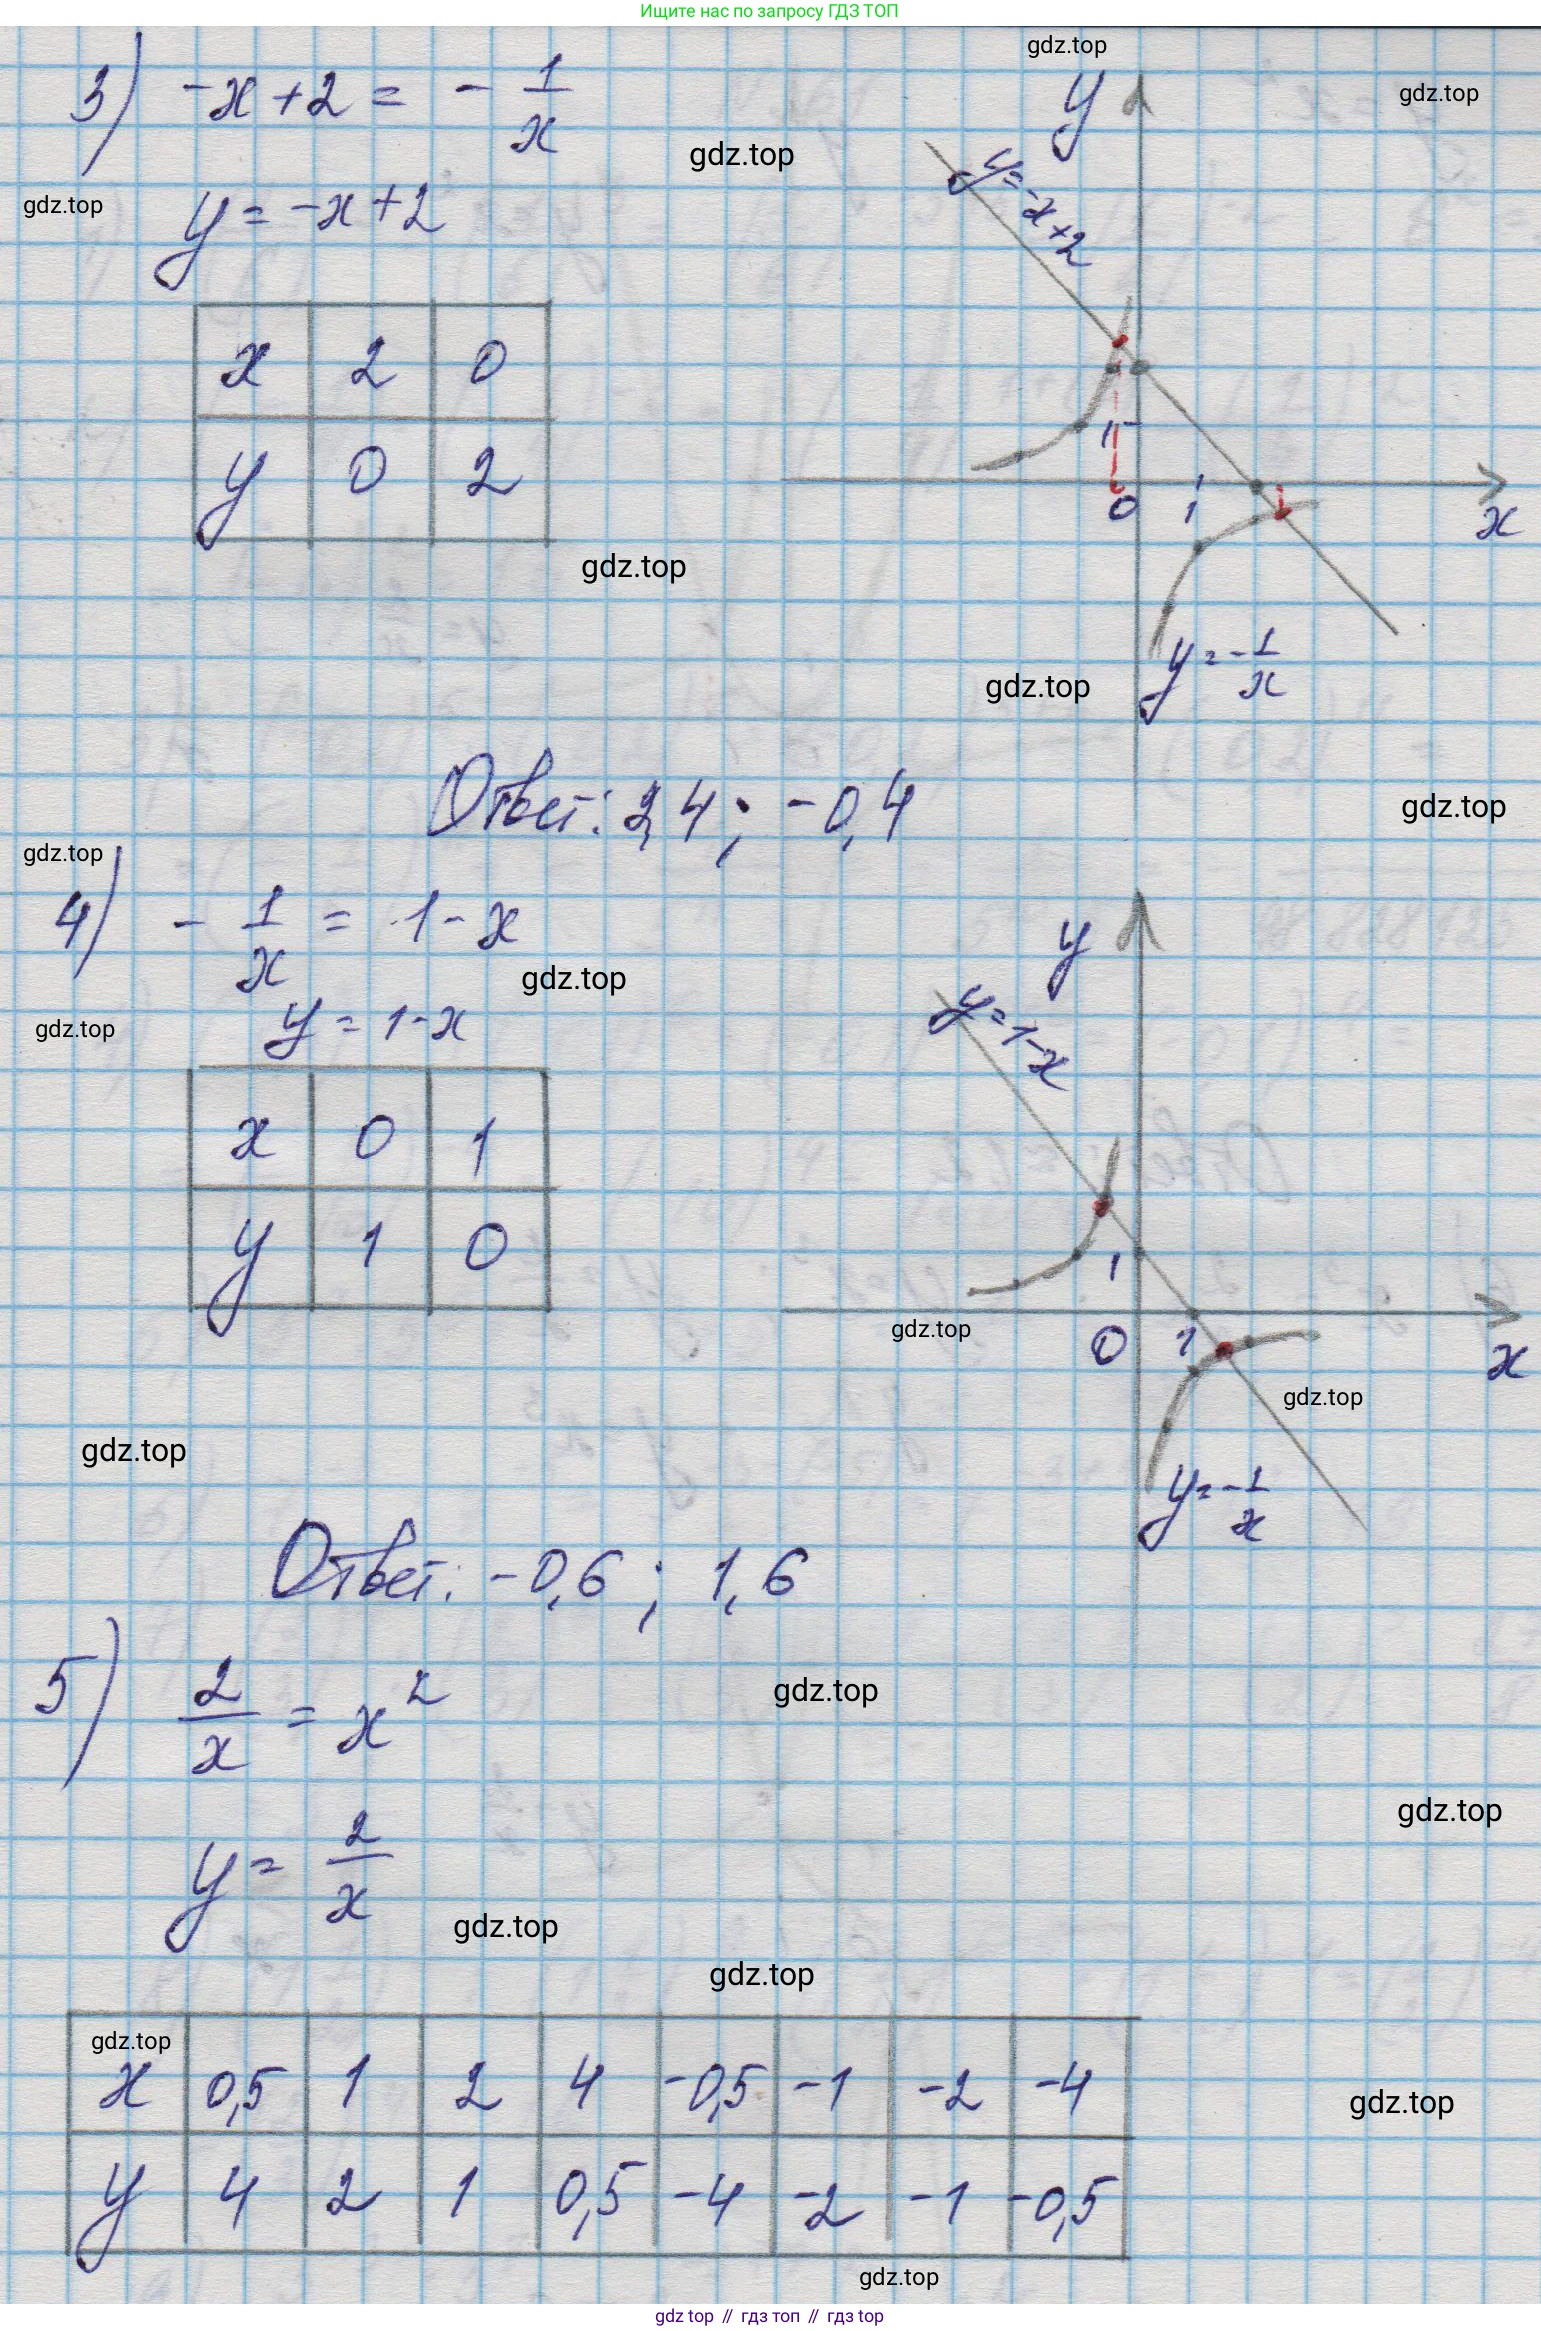 Ищите нас по запросу ГДЗ ТОП
3) -x + 2 = - 1/x
gdz.top
gdz.top
gdz.top
gdz.top
y = -x + 2
x 2 0
y 0 2
y
y = -x + 2
1
0 1
x
y = - 1/x
gdz.top
gdz.top
Ответ: 2,4 ; -0,4
gdz.top
gdz.top
4) - 1/x = 1 - x
gdz.top
gdz.top
y = 1 - x
x 0 1
y 1 0
y
y = 1 - x
1
0 1
x
y = - 1/x
gdz.top
gdz.top
gdz.top
Ответ: -0,6 ; 1,6
5) 2/x = x²
gdz.top
gdz.top
y = 2/x
gdz.top
gdz.top
gdz.top
x 0,5 1 2 4 -0,5 -1 -2 -4
y 4 2 1 0,5 -4 -2 -1 -0,5
gdz.top
gdz.top
gdz top // гдз топ // gdz top